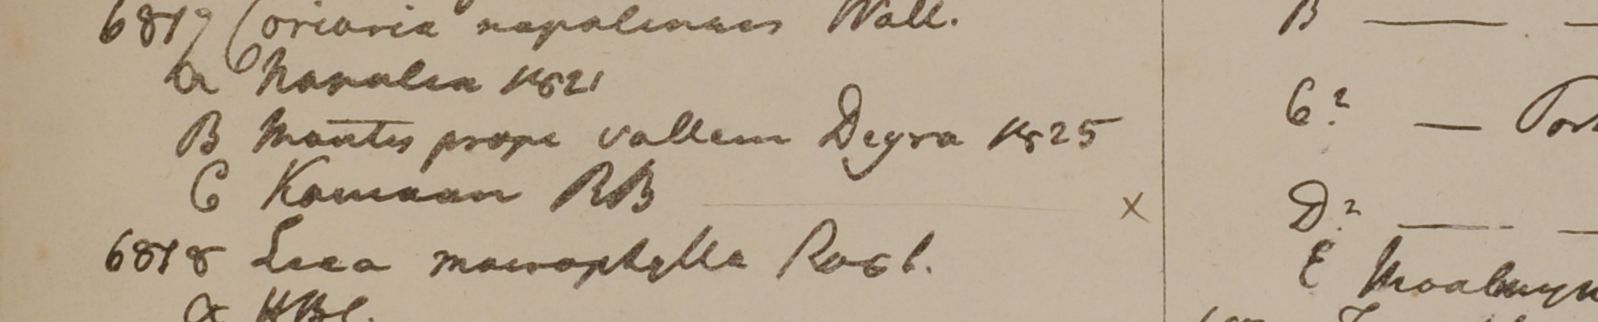 6817 Coriaria nepalensis Wall.
a Napalia 1821
B Montes prope vallem Deyra 1825
C Kamaon RB x
6818 Leea macrophylla Roxb.
a HBC.
B
C? —
D? —
E